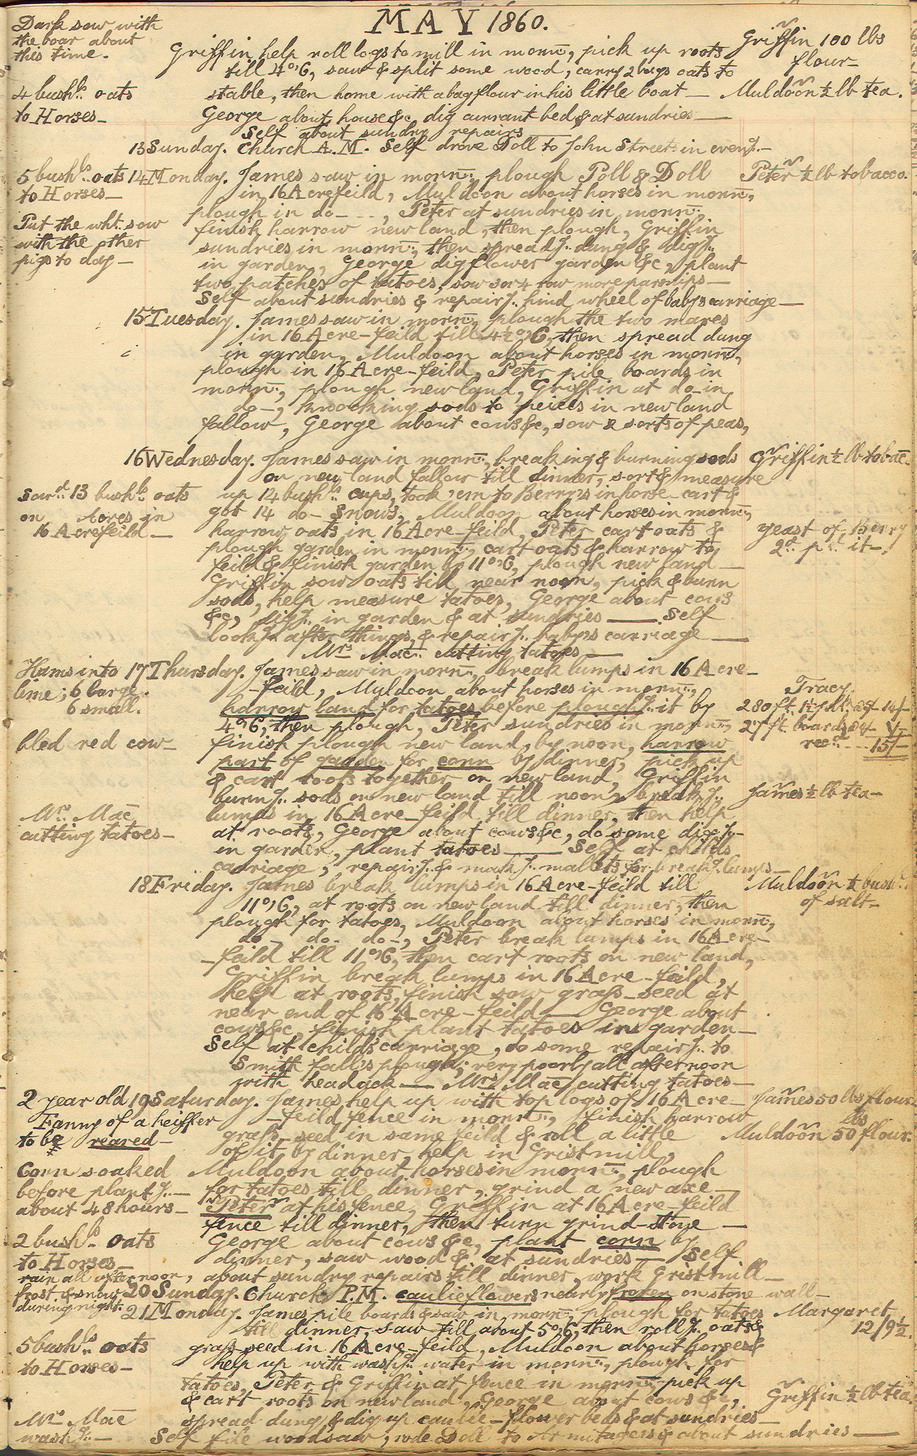 MAY 1860.
Dark sow with
the boar about
this time.
Griffin help roll logs to mill in morng, pick up roots
till 4 o'C, saw & split some wood, carry 2 bags oats to
stable, then home with a bag flour in his little boat —
George about house &c, dig currant bed & at sundries —
Self about sundry repairs
Griffin 100 lbs
flour —
Muldoon ½ lb tea.
4 bushls. oats
to Horses —
13 Sunday. Church A.M. Self drove Doll to John Street in eveng. —
5 bushls. oats
to Horses —
14 Monday. James saw in morng, plough Poll & Doll
in 16 Acre feild, Muldoon about horses in morng,
plough in do —, Peter at sundries in morng,
finish harrow new land, then plough, Griffin
sundries in morng, then spreadg. dung & digg.
in garden, George dig flower garden &c, plant
two patches of tatoes, sow 3 or 4 row more parsnips —
Self about sundries & repairg. hind wheel of baby's carriage —
Peter ½ lb tobacco.
Put the wht. sow
with the other
pigs to day —
15 Tuesday. James saw in morng, plough the two mares
in 16 Acre - feild till 4½ o'C, then spread dung
in garden, Muldoon about horses in morng,
plough in 16 Acre - feild, Peter pile boards in
morng, plough new land, Griffin at do in
do —, knocking sods to peices in new land
fallow, George about cows &c, sow 2 sorts of peas,
16 Wednesday. James saw in morng, breaking & burning sods
on new land fallow till dinner, sort & measure
up 14 bushls. cups, took 'em to Berry's in horse - cart &
got 14 do - Snows, Muldoon about horses in morng,
harrow oats in 16 Acre - feild, Peter cart oats &
plough garden in morng, cart oats & harrow to
feild & finish garden by 11 o'C, plough new land —
Griffin sow oats till near noon, pick & burn
sods, help measure tatoes, George about cows
&c, digg. in garden & at sundries — Self
lookg. after things, & repairg. baby's carriage —
Mrs. Mac. cutting tatoes —
Griffin ½ lb tobac.
Sowd. 13 bushls. oats
on Acres in
16 Acre feild —
yeast of Berry
2d. pd. it —
Hams into
lime; 6 large.
6 small.
17 Thursday. James saw in morng, break lumps in 16 Acre -
- feild, Muldoon about horses in morng,
harrow land for tatoes before ploughg. it by
4 o'C, then plough, Peter sundries in morng,
finish plough new land, by noon, harrow
part of garden for corn by dinner, pick up
& cart roots together on new land, Griffin
burng. sods on new land till noon, breakg.
lumps in 16 Acre - feild till dinner, then help
at roots, George about cows &c, do some digg. —
in garden, plant tatoes — Self at childs
carriage, repairg. & makg. mallets for breakg. lumps —
Tracy
280 ft.
27 ft. boards
recd. 15/-
bled red cow —
James ½ lb tea —
Mrs. Mac
cutting tatoes —
18 Friday. James break lumps in 16 Acre - feild till
11 o'C, at roots on new land till dinner, then
plough for tatoes, Muldoon about horses in morng,
do - do - do -, Peter break lumps in 16 Acre -
- feild till 11 o'C, then cart roots on new land,
Griffin break lumps in 16 Acre - feild,
help at roots, finish sow grass - seed at
near end of 16 Acre - feild — George about
cows &c, finish plant tatoes in garden —
Self at child's carriage, do some repairg. to
Smith fall's plough, very poorly all afternoon
with headach — Mrs. Mac cutting tatoes —
Muldoon ½ bushl.
of salt —
2 year old
Fanny of a heiffer
to be reared —
19 Saturday. James help up with top logs of 16 Acre -
- feild fence in morng, finish harrow
grass seed in same feild & roll a little
of it by dinner, help in Gristmill,
Muldoon about horses in morng, plough
for tatoes till dinner, grind a new axe —
Peter at his fence, Griffin at 16 Acre - feild
fence till dinner, then turn grind - stone —
George about cows &c, plant corn by
dinner, saw wood & at sundries — Self
about sundry repairs till dinner, work Gristmill —
James 50 lbs flour.
lbs
Muldoon 50 flour.
Corn soaked
before plantg. —
about 48 hours —
2 bushls. oats
to Horses —
rain all afternoon,
frost, & snow
during night.
20 Sunday. Church P.M. caulieflowers nearly frozen on stone wall —
21 Monday. James pile boards & saw in morng, plough for tatoes
till dinner, saw till about 5 o'C, then rollg. oats &
grass seed in 16 Acre - feild, Muldoon about horses &
help up with washg. water in morng, plough for
tatoes, Peter & Griffin at fence in morng, pick up
& cart roots on new land, George about cows &c,
spread dung & dig up caulie - flower beds & at sundries —
Self file woodsaw, rode Doll to Armitages & about sundries —
Margaret
12/9½.
5 bushls. oats
to Horses —
Griffin ½ lb tea.
Mrs. Mac
washg. —